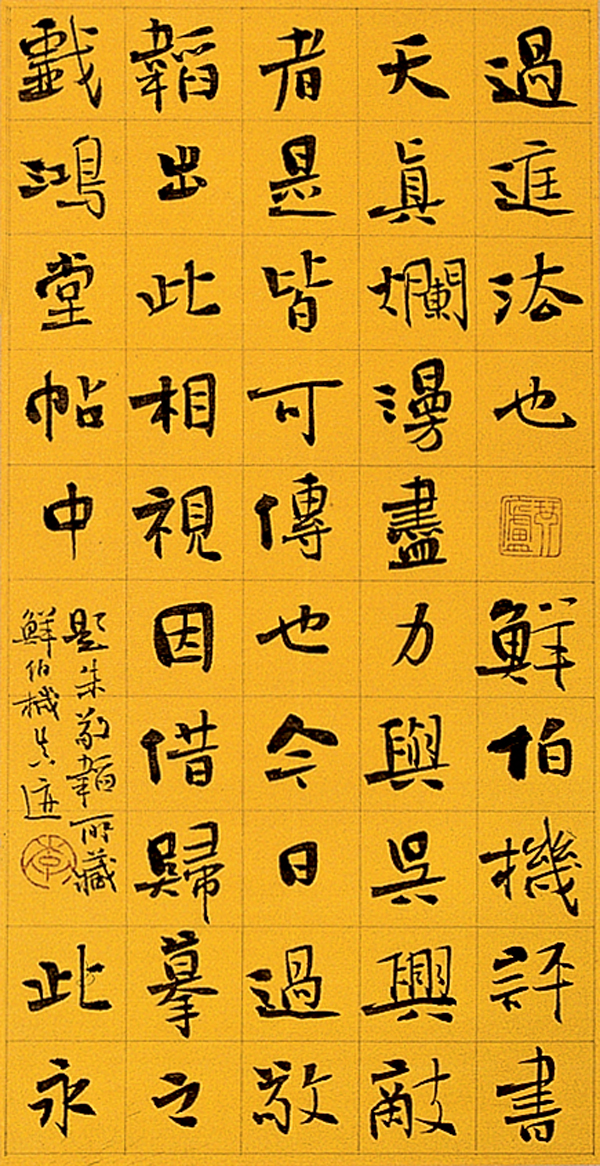 過進法也鮮伯機評書
天眞爛漫盡力與吳興敵
者是皆可傳也今日過敬
韜出此相視因借歸摹之
戲鴻堂帖中
題朱敬韜所藏
鮮伯機真迹
此永